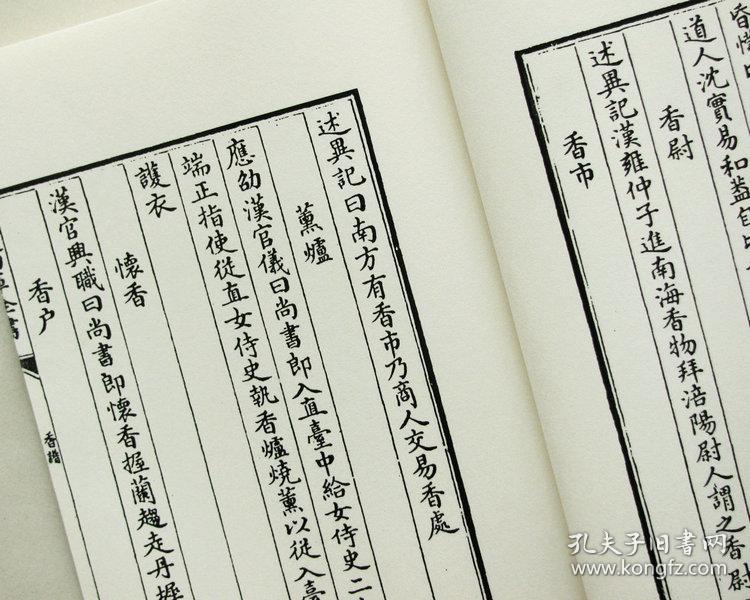 道人沈實易和蓋
香尉
述異記漢雍仲子進南海香物拜涪陽尉人謂之香尉
香市
述異記曰南方有香市乃商人交易香處
薰爐
應劭漢官儀曰尚書郎入直臺中給女侍史二
端正指使從直女侍史執香爐燒薰以從入臺
護衣
懷香
漢官典職曰尚書郎懷香握蘭趨走丹握
香户
香譜
孔夫子旧书网
www.kongfz.com